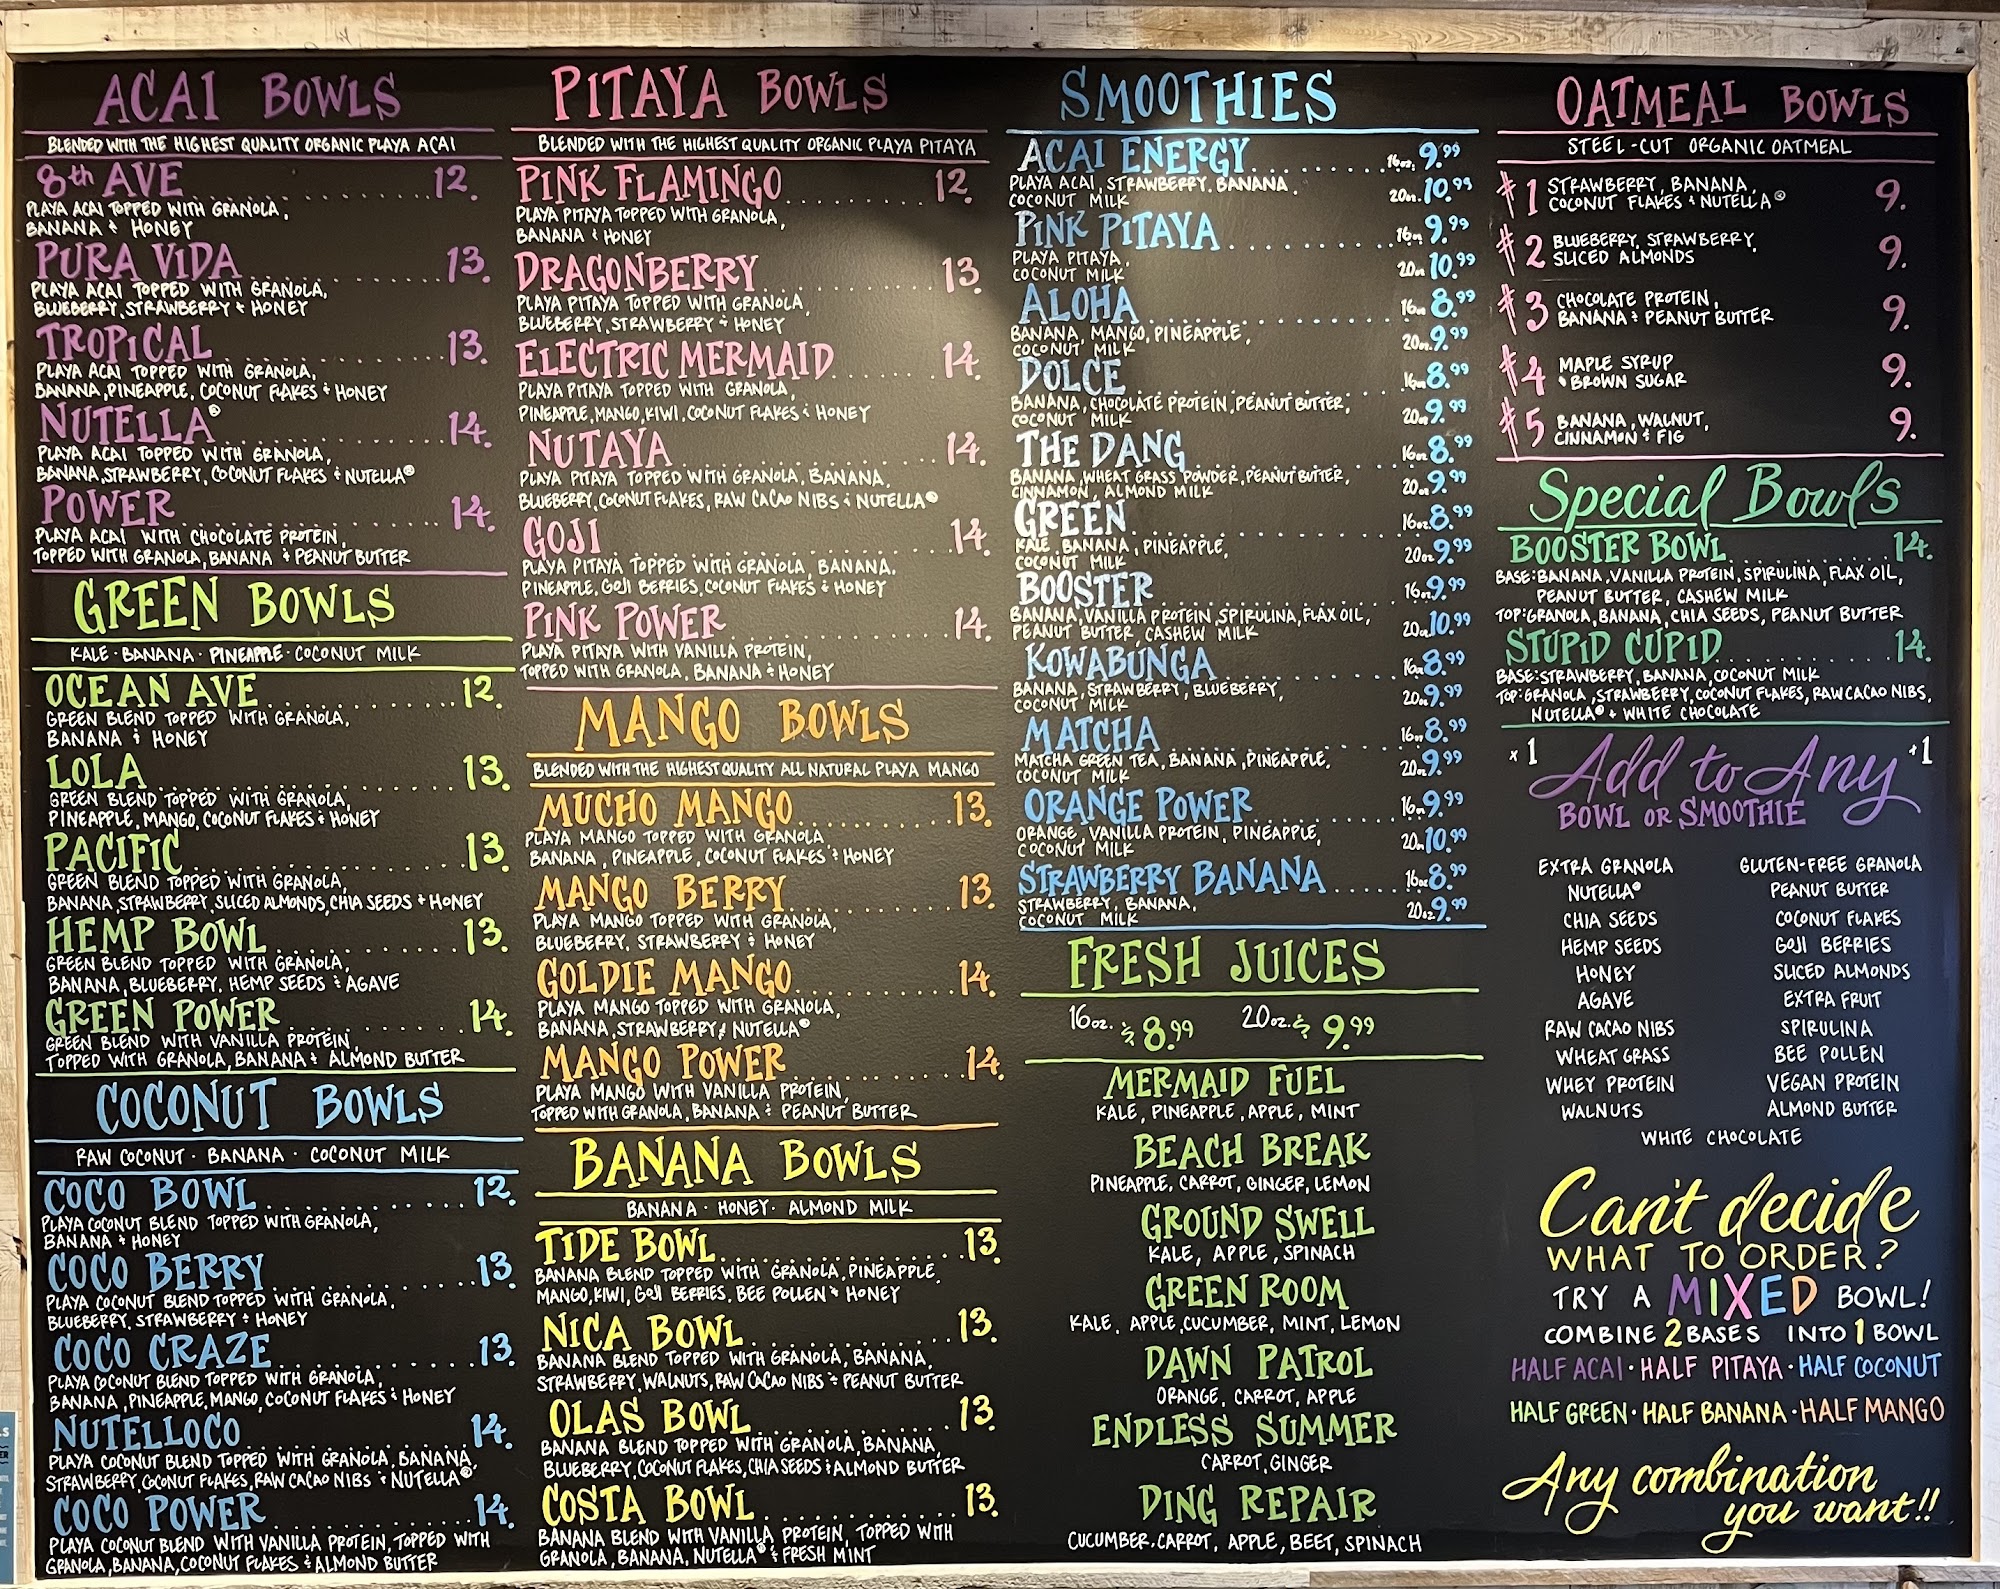 ACAI BOWLS
BLENDED WITH THE HIGHEST QUALITY ORGANIC PLAYA ACAI
8th AVE 12.
PLAYA ACAI TOPPED WITH GRANOLA,
BANANA & HONEY
PURA VIDA 13.
PLAYA ACAI TOPPED WITH GRANOLA,
BLUEBERRY, STRAWBERRY & HONEY
TROPICAL 13.
PLAYA ACAI TOPPED WITH GRANOLA,
BANANA, PINEAPPLE, COCONUT FLAKES & HONEY
NUTELLA® 14.
PLAYA ACAI TOPPED WITH GRANOLA,
BANANA, STRAWBERRY, COCONUT FLAKES & NUTELLA®
POWER 14.
PLAYA ACAI WITH CHOCOLATE PROTEIN,
TOPPED WITH GRANOLA, BANANA & PEANUT BUTTER
GREEN BOWLS
KALE · BANANA · PINEAPPLE · COCONUT MILK
OCEAN AVE 12.
GREEN BLEND TOPPED WITH GRANOLA,
BANANA & HONEY
LOLA 13.
GREEN BLEND TOPPED WITH GRANOLA,
PINEAPPLE, MANGO, COCONUT FLAKES & HONEY
PACIFIC 13.
GREEN BLEND TOPPED WITH GRANOLA,
BANANA, STRAWBERRY, SLICED ALMONDS, CHIA SEEDS & HONEY
HEMP BOWL 13.
GREEN BLEND TOPPED WITH GRANOLA,
BANANA, BLUEBERRY, HEMP SEEDS & AGAVE
GREEN POWER 14.
GREEN BLEND WITH VANILLA PROTEIN,
TOPPED WITH GRANOLA, BANANA & ALMOND BUTTER
COCONUT BOWLS
RAW COCONUT · BANANA · COCONUT MILK
COCO BOWL 12.
PLAYA COCONUT BLEND TOPPED WITH GRANOLA,
BANANA & HONEY
COCO BERRY 13.
PLAYA COCONUT BLEND TOPPED WITH GRANOLA,
BLUEBERRY, STRAWBERRY & HONEY
COCO CRAZE 13.
PLAYA COCONUT BLEND TOPPED WITH GRANOLA,
BANANA, PINEAPPLE, MANGO, COCONUT FLAKES & HONEY
NUTELLOCO 14.
PLAYA COCONUT BLEND TOPPED WITH GRANOLA, BANANA,
STRAWBERRY, COCONUT FLAKES, RAW CACAO NIBS & NUTELLA®
COCO POWER 14.
PLAYA COCONUT BLEND WITH VANILLA PROTEIN, TOPPED WITH
GRANOLA, BANANA, COCONUT FLAKES & ALMOND BUTTER
PITAYA BOWLS
BLENDED WITH THE HIGHEST QUALITY ORGANIC PLAYA PITAYA
PINK FLAMINGO 12.
PLAYA PITAYA TOPPED WITH GRANOLA,
BANANA & HONEY
DRAGONBERRY 13.
PLAYA PITAYA TOPPED WITH GRANOLA,
BLUEBERRY, STRAWBERRY & HONEY
ELECTRIC MERMAID 14.
PLAYA PITAYA TOPPED WITH GRANOLA,
PINEAPPLE, MANGO, KIWI, COCONUT FLAKES & HONEY
NUTAYA 14.
PLAYA PITAYA TOPPED WITH GRANOLA, BANANA,
BLUEBERRY, COCONUT FLAKES, RAW CACAO NIBS & NUTELLA®
GOJI 14.
PLAYA PITAYA TOPPED WITH GRANOLA, BANANA,
PINEAPPLE, GOJI BERRIES, COCONUT FLAKES & HONEY
PINK POWER 14.
PLAYA PITAYA WITH VANILLA PROTEIN,
TOPPED WITH GRANOLA, BANANA & HONEY
MANGO BOWLS
BLENDED WITH THE HIGHEST QUALITY ALL NATURAL PLAYA MANGO
MUCHO MANGO 13.
PLAYA MANGO TOPPED WITH GRANOLA,
BANANA, PINEAPPLE, COCONUT FLAKES & HONEY
MANGO BERRY 13.
PLAYA MANGO TOPPED WITH GRANOLA,
BLUEBERRY, STRAWBERRY & HONEY
GOLDIE MANGO 14.
PLAYA MANGO TOPPED WITH GRANOLA,
BANANA, STRAWBERRY & NUTELLA®
MANGO POWER 14.
PLAYA MANGO WITH VANILLA PROTEIN,
TOPPED WITH GRANOLA, BANANA & PEANUT BUTTER
BANANA BOWLS
BANANA · HONEY · ALMOND MILK
TIDE BOWL 13.
BANANA BLEND TOPPED WITH GRANOLA, PINEAPPLE,
MANGO, KIWI, GOJI BERRIES, BEE POLLEN & HONEY
NICA BOWL 13.
BANANA BLEND TOPPED WITH GRANOLA, BANANA,
STRAWBERRY, WALNUTS, RAW CACAO NIBS & PEANUT BUTTER
OLAS BOWL 13.
BANANA BLEND TOPPED WITH GRANOLA, BANANA,
BLUEBERRY, COCONUT FLAKES, CHIA SEEDS & ALMOND BUTTER
COSTA BOWL 13.
BANANA BLEND WITH VANILLA PROTEIN, TOPPED WITH
GRANOLA, BANANA, NUTELLA® & FRESH MINT
SMOOTHIES
ACAI ENERGY 16oz. 9.99
PLAYA ACAI, STRAWBERRY, BANANA, 20oz. 10.99
COCONUT MILK
PINK PITAYA 16oz 9.99
PLAYA PITAYA,
COCONUT MILK 20oz 10.99
ALOHA 16oz 8.99
BANANA, MANGO, PINEAPPLE,
COCONUT MILK 20oz. 9.99
DOLCE 16oz 8.99
BANANA, CHOCOLATE PROTEIN, PEANUT BUTTER,
COCONUT MILK 20oz. 9.99
THE DANG 16oz 8.99
BANANA, WHEAT GRASS POWDER, PEANUT BUTTER,
CINNAMON, ALMOND MILK 20oz. 9.99
GREEN 16oz. 8.99
KALE, BANANA, PINEAPPLE,
COCONUT MILK 20oz. 9.99
BOOSTER 16oz. 9.99
BANANA, VANILLA PROTEIN, SPIRULINA, FLAX OIL,
PEANUT BUTTER, CASHEW MILK 20oz. 10.99
KOWABUNGA 16oz 8.99
BANANA, STRAWBERRY, BLUEBERRY,
COCONUT MILK 20oz. 9.99
MATCHA 16oz 8.99
MATCHA GREEN TEA, BANANA, PINEAPPLE,
COCONUT MILK 20oz 9.99
ORANGE POWER 16oz. 9.99
ORANGE, VANILLA PROTEIN, PINEAPPLE,
COCONUT MILK 20oz. 10.99
STRAWBERRY BANANA 16oz 8.99
STRAWBERRY, BANANA,
COCONUT MILK 20oz 9.99
FRESH JUICES
16oz. $ 8.99 20oz. $ 9.99
MERMAID FUEL
KALE, PINEAPPLE, APPLE, MINT
BEACH BREAK
PINEAPPLE, CARROT, GINGER, LEMON
GROUND SWELL
KALE, APPLE, SPINACH
GREEN ROOM
KALE, APPLE, CUCUMBER, MINT, LEMON
DAWN PATROL
ORANGE, CARROT, APPLE
ENDLESS SUMMER
CARROT, GINGER
DING REPAIR
CUCUMBER, CARROT, APPLE, BEET, SPINACH
OATMEAL BOWLS
STEEL-CUT ORGANIC OATMEAL
#1 STRAWBERRY, BANANA, 9.
COCONUT FLAKES & NUTELLA®
#2 BLUEBERRY, STRAWBERRY, 9.
SLICED ALMONDS
#3 CHOCOLATE PROTEIN, 9.
BANANA & PEANUT BUTTER
#4 MAPLE SYRUP 9.
& BROWN SUGAR
#5 BANANA, WALNUT, 9.
CINNAMON & FIG
Special Bowls
BOOSTER BOWL 14.
BASE: BANANA, VANILLA PROTEIN, SPIRULINA, FLAX OIL,
PEANUT BUTTER, CASHEW MILK
TOP: GRANOLA, BANANA, CHIA SEEDS, PEANUT BUTTER
STUPID CUPID 14.
BASE: STRAWBERRY, BANANA, COCONUT MILK
TOP: GRANOLA, STRAWBERRY, COCONUT FLAKES, RAW CACAO NIBS,
NUTELLA® & WHITE CHOCOLATE
+1 Add to Any +1
BOWL OR SMOOTHIE
EXTRA GRANOLA GLUTEN-FREE GRANOLA
NUTELLA® PEANUT BUTTER
CHIA SEEDS COCONUT FLAKES
HEMP SEEDS GOJI BERRIES
HONEY SLICED ALMONDS
AGAVE EXTRA FRUIT
RAW CACAO NIBS SPIRULINA
WHEAT GRASS BEE POLLEN
WHEY PROTEIN VEGAN PROTEIN
WALNUTS ALMOND BUTTER
WHITE CHOCOLATE
Can't decide
WHAT TO ORDER?
TRY A MIXED BOWL!
COMBINE 2 BASES INTO 1 BOWL
HALF ACAI · HALF PITAYA · HALF COCONUT
HALF GREEN · HALF BANANA · HALF MANGO
Any combination
you want!!